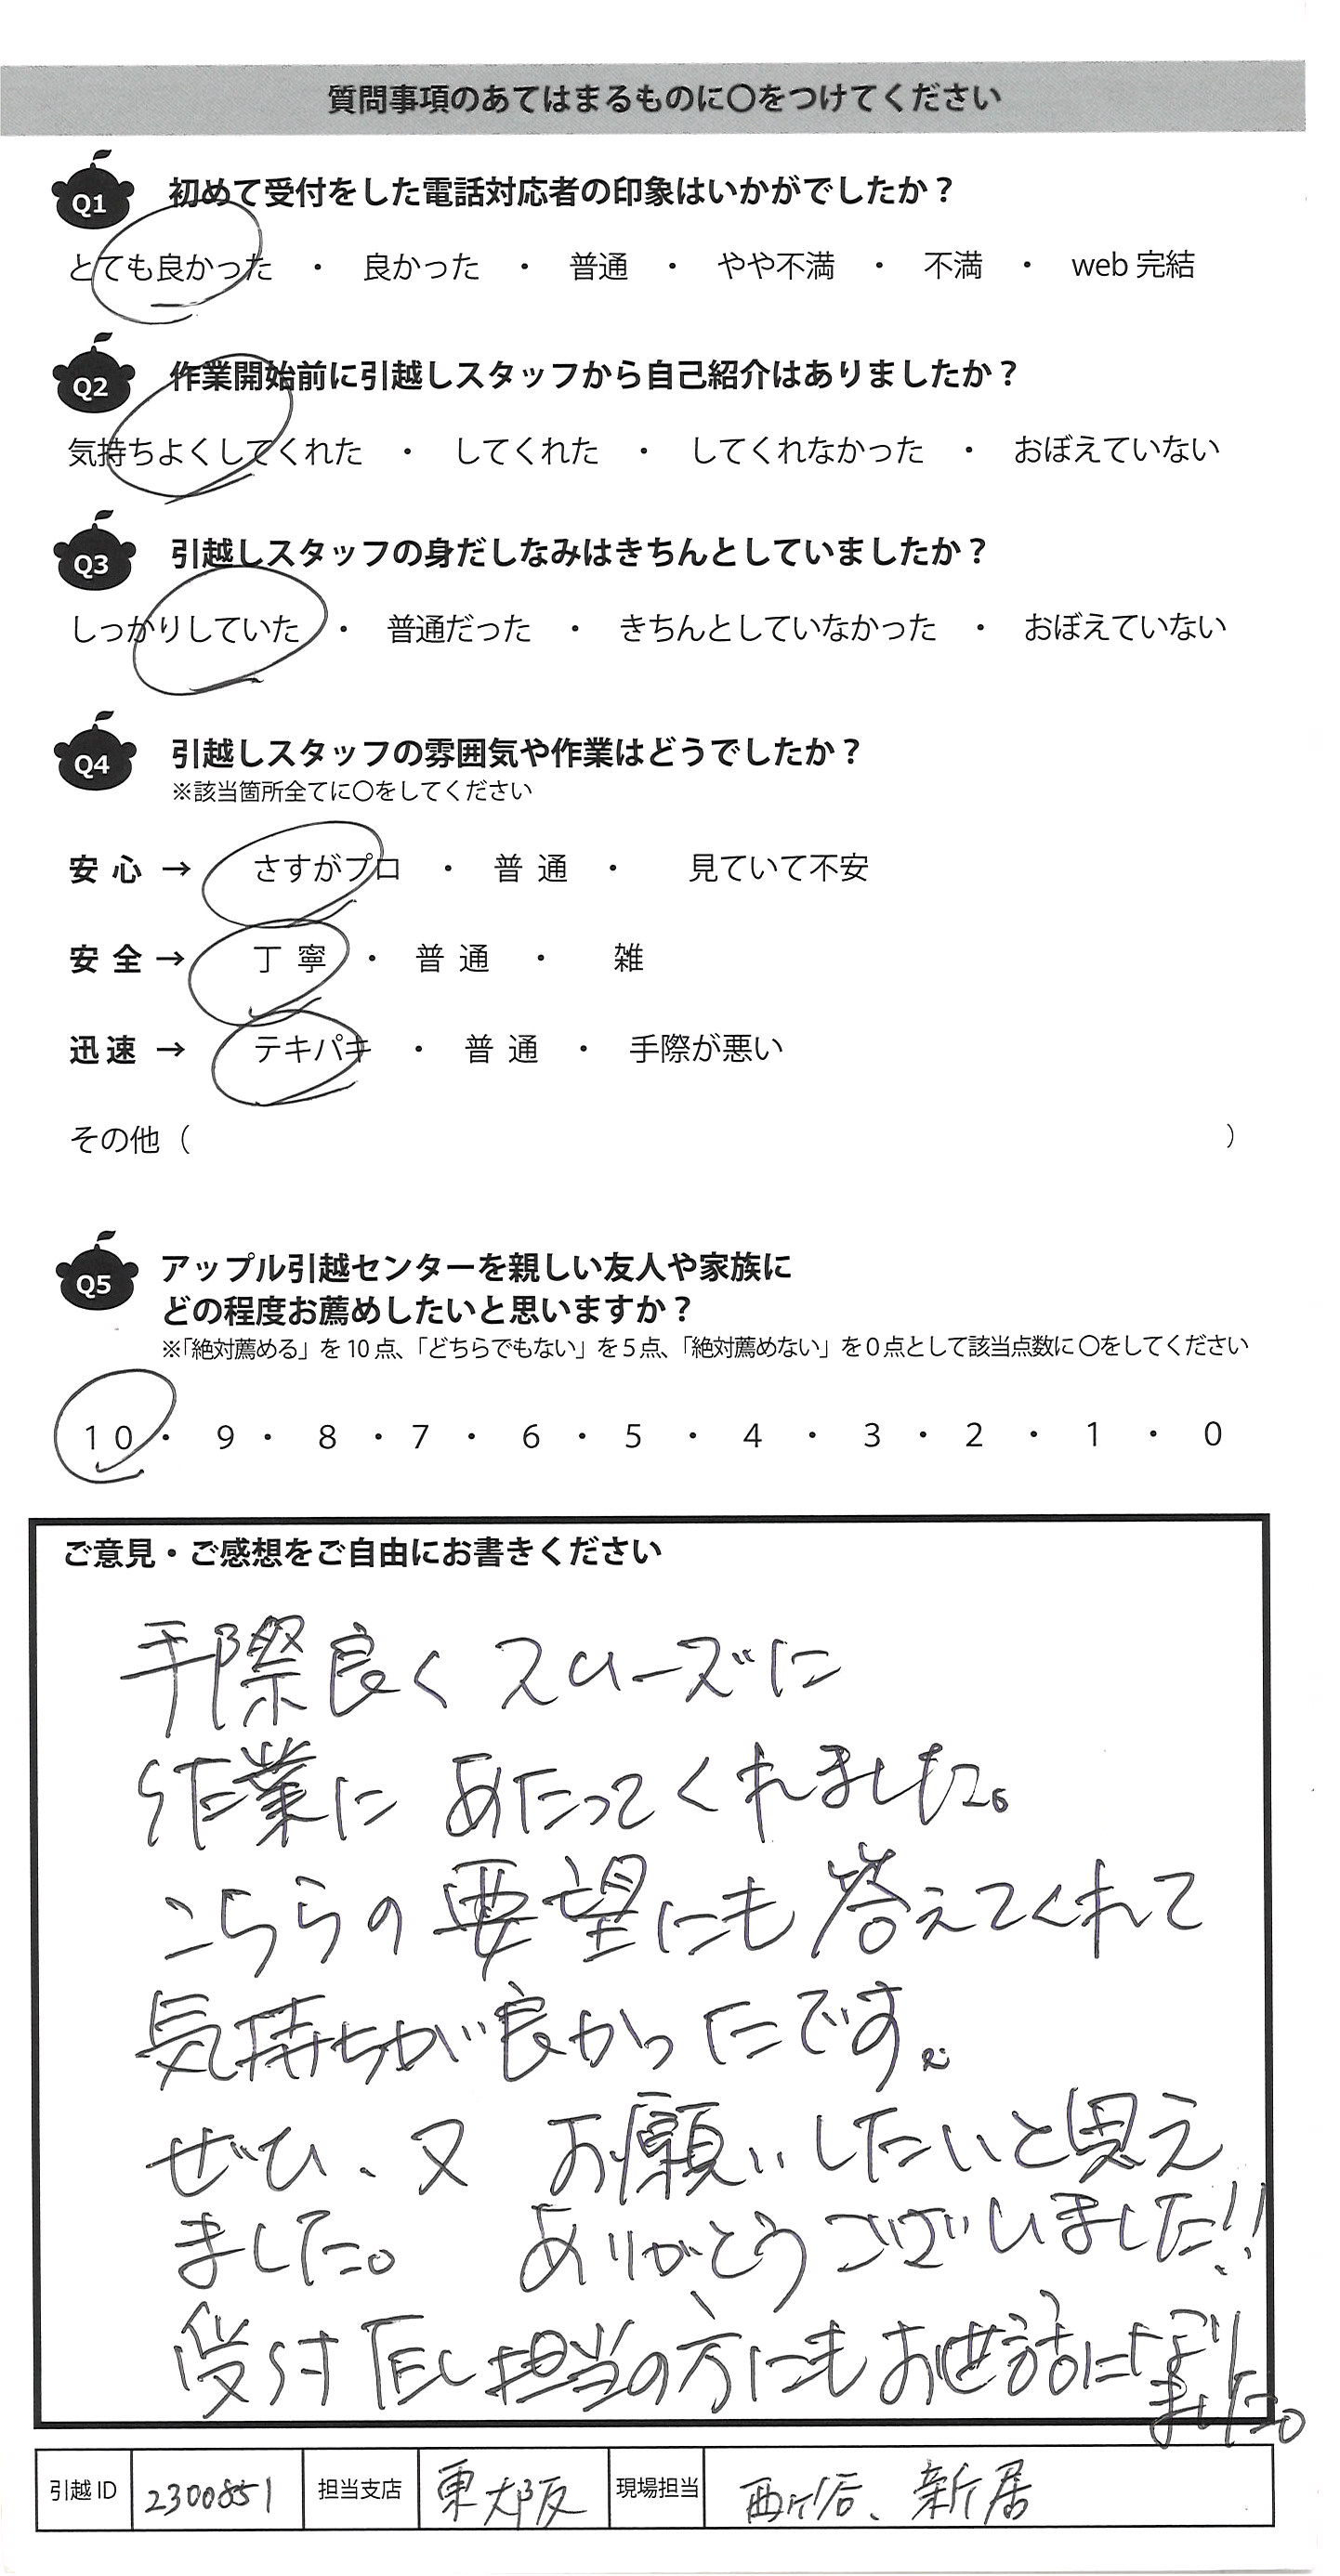 質問事項のあてはまるものに〇をつけてください
Q1 初めて受付をした電話対応者の印象はいかがでしたか？
とても良かった ・ 良かった ・ 普通 ・ やや不満 ・ 不満 ・ web 完結
Q2 作業開始前に引越しスタッフから自己紹介はありましたか？
気持ちよくしてくれた ・ してくれた ・ してくれなかった ・ おぼえていない
Q3 引越しスタッフの身だしなみはきちんとしていましたか？
しっかりしていた ・ 普通だった ・ きちんとしていなかった ・ おぼえていない
Q4 引越しスタッフの雰囲気や作業はどうでしたか？
※該当箇所全てに〇をしてください
安心 → さすがプロ ・ 普通 ・ 見ていて不安
安全 → 丁寧 ・ 普通 ・ 雑
迅速 → テキパキ ・ 普通 ・ 手際が悪い
その他（ ）
Q5 アップル引越センターを親しい友人や家族に
どの程度お薦めしたいと思いますか？
※「絶対薦める」を10点、「どちらでもない」を5点、「絶対薦めない」を0点として該当点数に〇をしてください
10 ・ 9 ・ 8 ・ 7 ・ 6 ・ 5 ・ 4 ・ 3 ・ 2 ・ 1 ・ 0
ご意見・ご感想をご自由にお書きください
手際良くスムーズに
作業にあたってくれました。
こちらの要望にも答えてくれて
気持ちが良かったです。
ぜひ、又 お願いしたいと思え
ました。 ありがとうございました!!
受付TEL担当の方にもお世話になり
ました。
引越ID 2300851 担当支店 東大阪 現場担当 西ヶ谷、新居